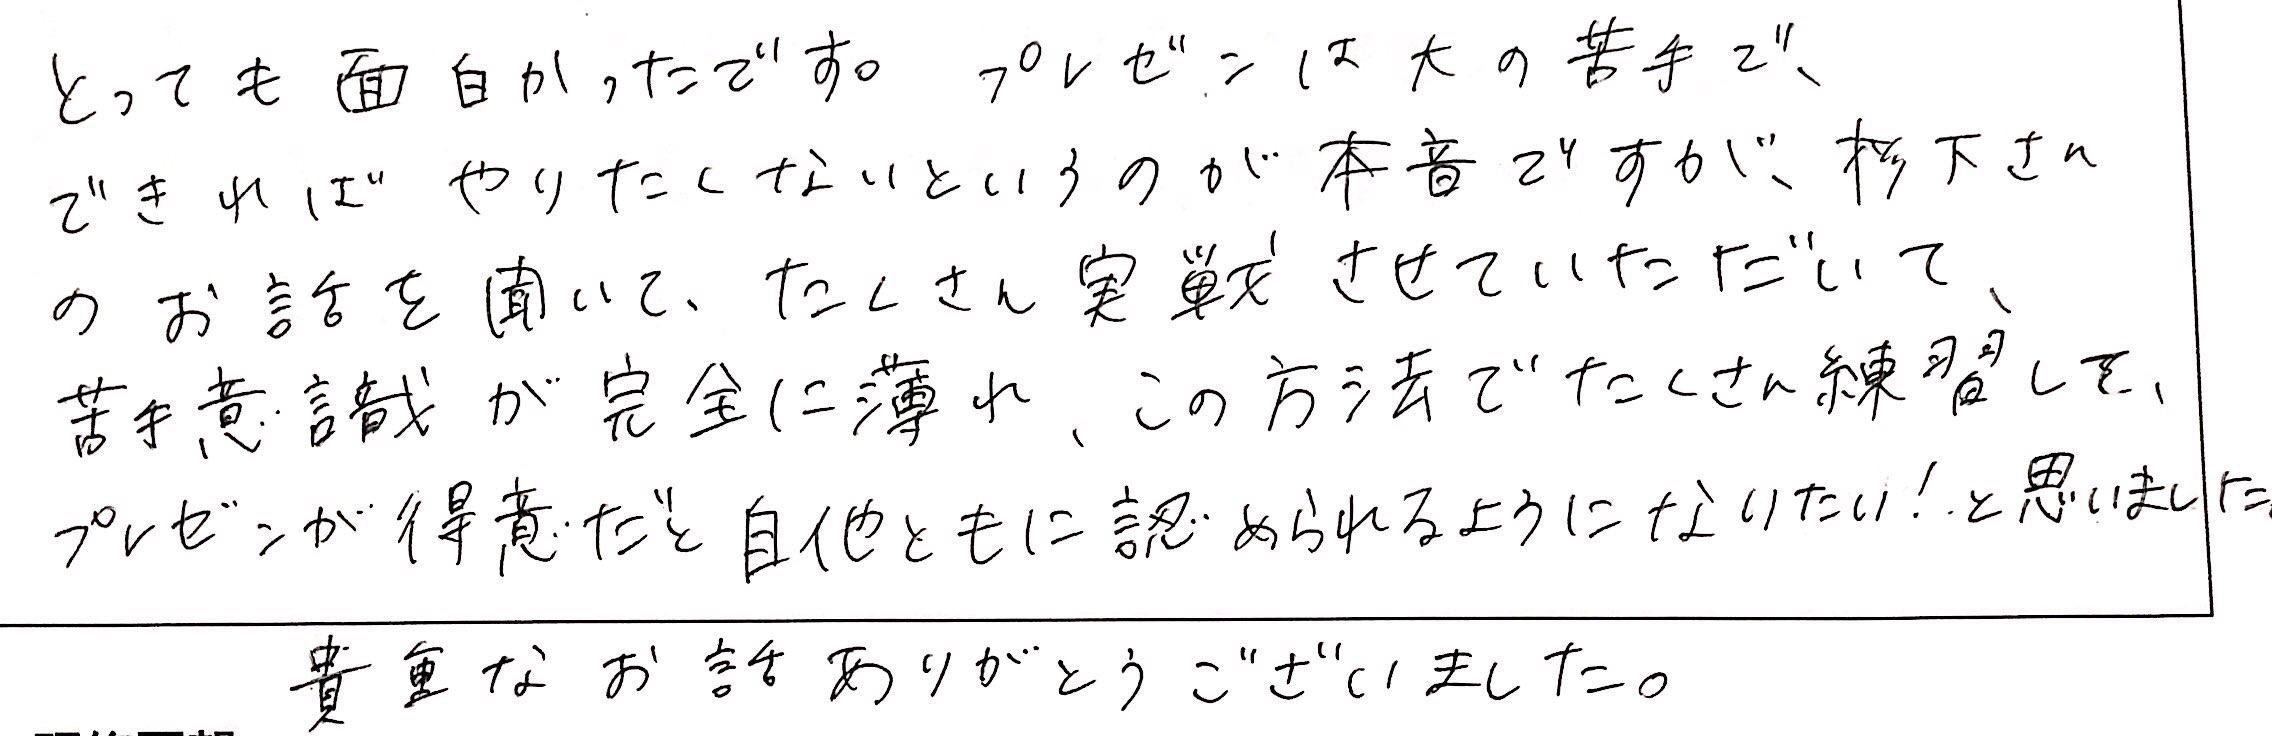 とっても面白かったです。プレゼンは大の苦手で、
できればやりたくないというのが本音ですが、杉下さん
のお話を聞いて、たくさん実戦させていただいて、
苦手意識が完全に薄れ、この方法でたくさん練習して、
プレゼンが得意だと自他ともに認められるようになりたい！と思いました。
貴重なお話ありがとうございました。